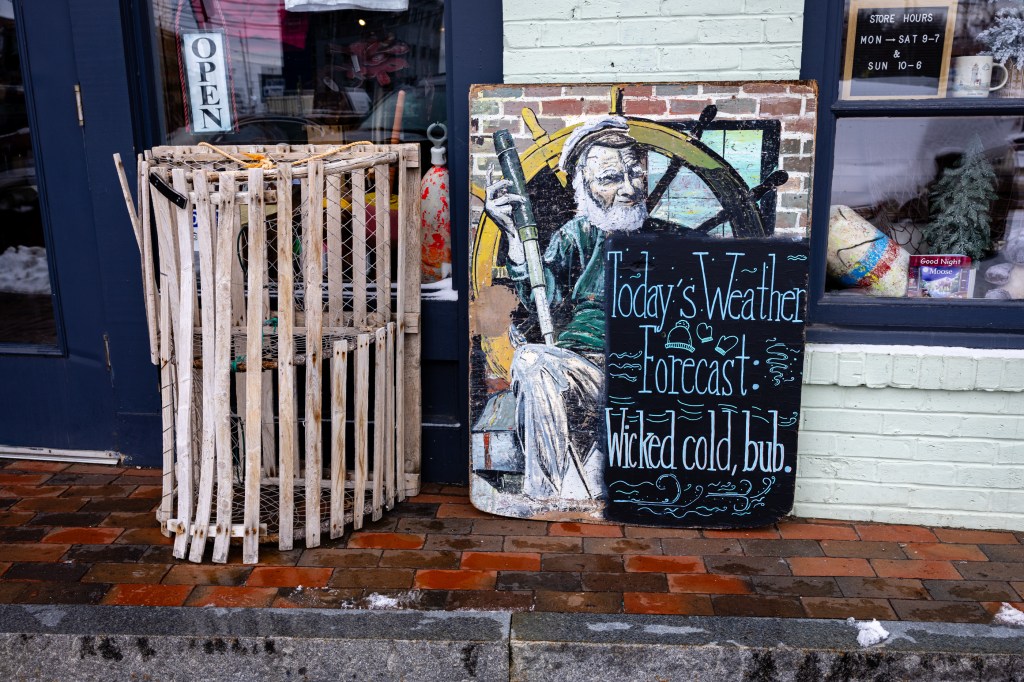 OPEN
STORE HOURS
MON → SAT 9-7
&
SUN 10-6
Today's Weather
Forecast:
Wicked cold, bub.
Good Night
Moose